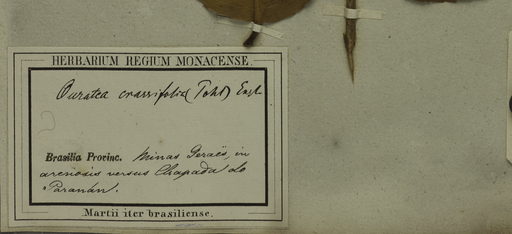 HERBARIUM REGIUM MONACENSE.
Ouratea crassifolia (Pohl) Engl.
Brasilia Provinc. Minas Geraës, in
arenosis versus Chapada do
Paranán.
Martii iter brasiliense.